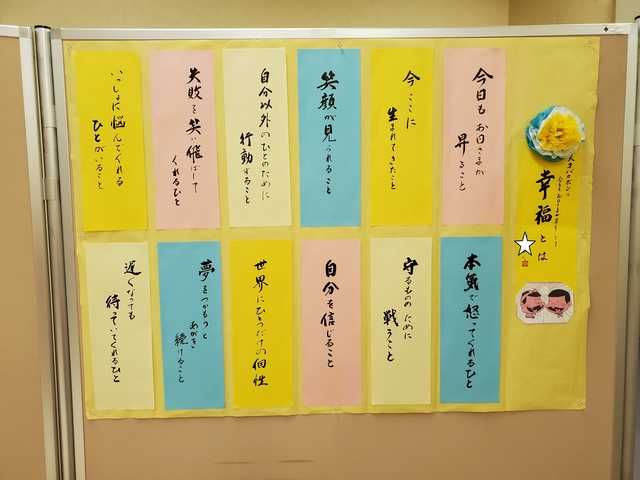 幸福とは
今日も お日さまが
昇ること
今ここに
生まれてきたこと
笑顔が見られること
自分以外のひとのために
行動すること
失敗を笑い飛ばして
くれるひと
いっしょに悩んでくれる
ひとがいること
本気で怒ってくれるひと
守るもののために
戦うこと
自分を信じること
世界にひとつだけの個性
夢をつかもうと
あがき
続けること
遅くなっても
待っていてくれるひと